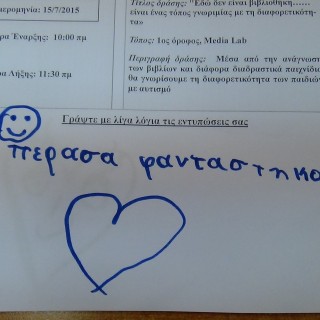 ερομηνία: 15/7/2015
ρα Έναρξης: 10:00 πμ
α Λήξης: 11:30 πμ
Τίτλος δράσης: "Εδώ δεν είναι βιβλιοθήκη……
είναι ένας τόπος γνωριμίας με τη διαφορετικότη-
τα»
Τόπος: 1ος όροφος, Media Lab
Περιγραφή δράσης: Μέσα από την ανάγνωσ
των βιβλίων και διάφορα διαδραστικά παιχνίδια
θα γνωρίσουμε τη διαφορετικότητα των παιδιών
με αυτισμό
Γράψτε με λίγα λόγια τις εντυπώσεις σας
περασα φανταστηκα